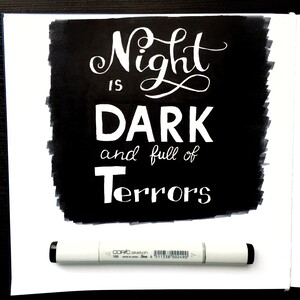 Night
IS
DARK
and full of
Terrors
COPIC